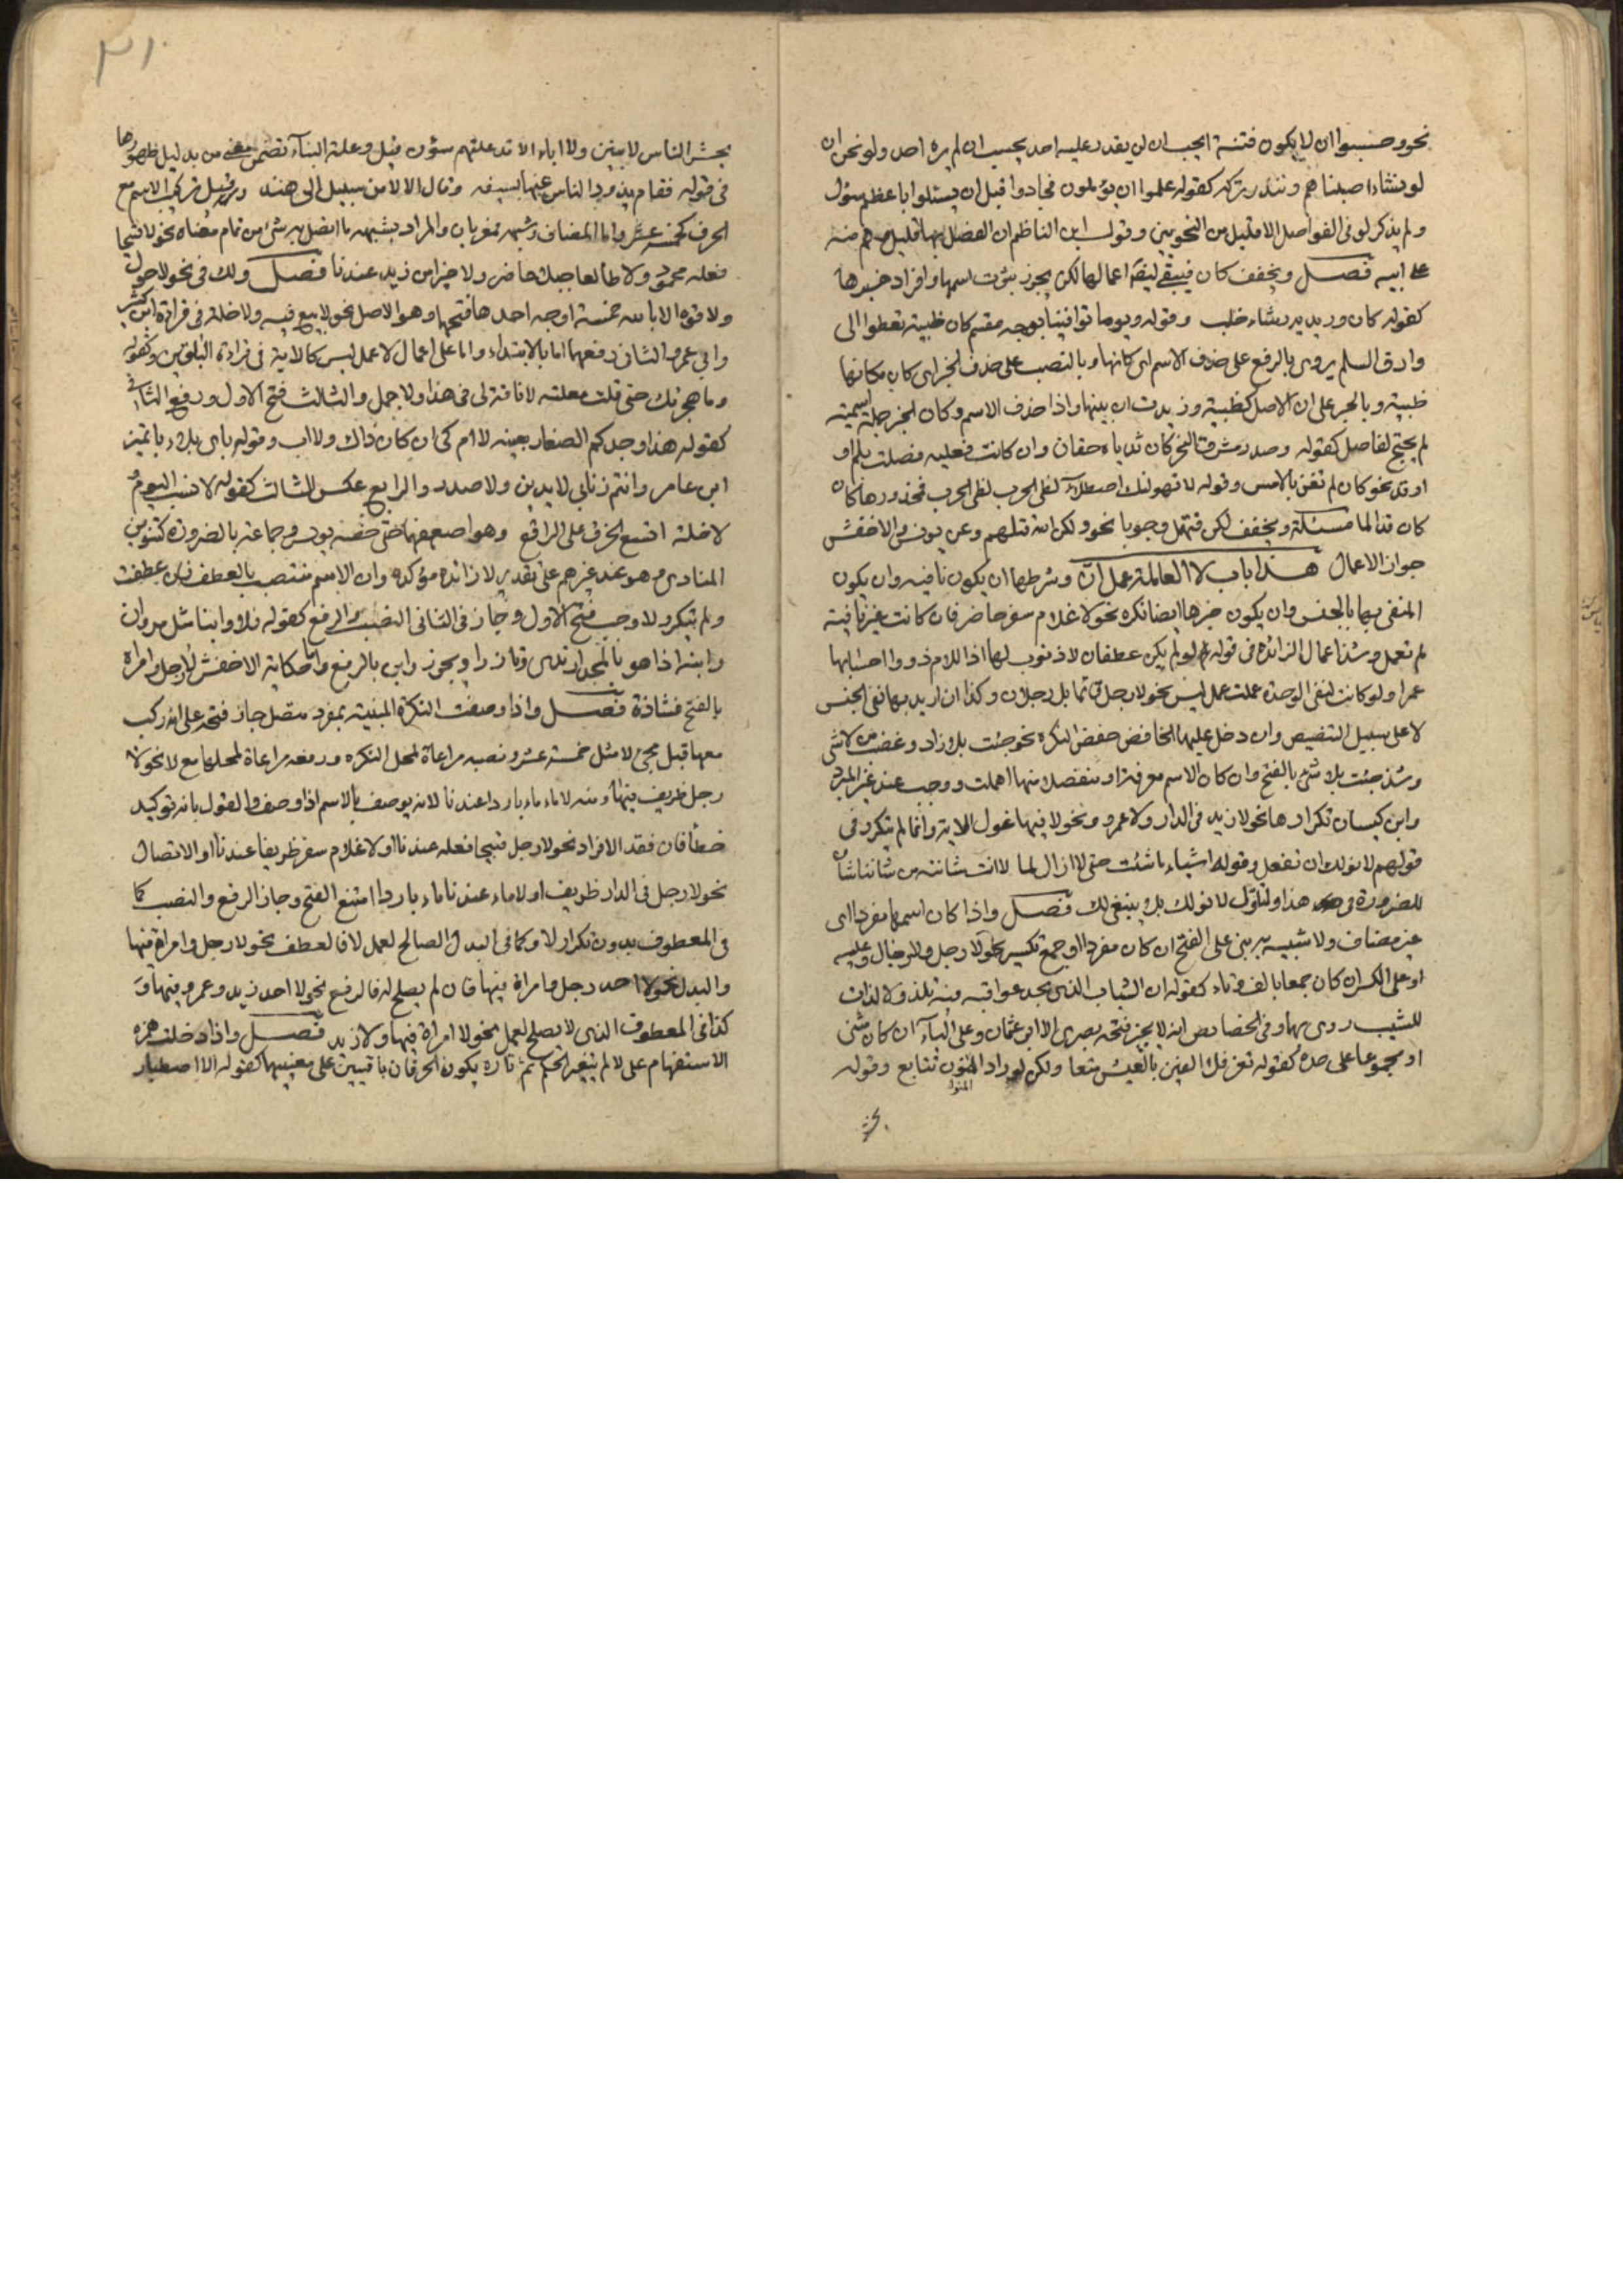 نحو وحسبوا ان لا يكون فتنة ايحسب ان لن يقدر عليه احد يحسب ان لم يره احد ولو نحو ان
لو نشاء اصبناهم ويندر تركه كقوله علموا ان يؤملون فجادوا قبل ان يسئلوا باعظم سؤل
ولم يذكر لو فى الفواصل الا قليل من النحويين وقول ابن الناظم ان الفصل بها قليل وهم منه
على ابيه فصل وتخفف كان فيبقى ايضا اعمالها لكن يجوز ثبوت اسمها وافراد خبرها
كقوله كان وريديه رشاء خلب وقوله ويوما توافينا بوجه مقسم كان ظبية تعطوا الى
وارق السلم يروى بالرفع على حذف الاسم اى كانها وبالنصب على حذف الخبر اى كان مكانها
ظبية وبالجر على ان الاصل كظبية وزيدت ان بينها واذا حذف الاسم وكان الخبر جملة اسمية
لم يحتج لفاصل كقوله وصدر مشرق النحر كان ثدياه حقان وان كانت فعلية فصلت بلم او
او قد نحو كان لم تغن بالامس وقوله لا يهولنك اصطلاء لظى الحرب فمحذورها كان
كان قد الما مسئلة وتخفف لكن فتهمل وجوبا نحو ولكن الله قتلهم وعن يونس والاخفش
جواز الاعمال هذا باب لا العاملة عمل ان وشرطها ان يكون نافية وان يكون
المنفى بها الجنس وان يكون خبرها ايضا نكرة نحو لا غلام سفر حاضر فان كانت غير نافية
لم تعمل وشذ اعمال الزائدة فى قوله لو لم يكن غطفان لا ذنوب لها اذا للام ذووا احسابها
عمرا ولو كانت لنفى الوحدة عملت عمل ليس نحو لا رجل قائما بل رجلان وكذا ان اريد بها نفى الجنس
لا على سبيل التنصيص وان دخل عليها الخافض خفض النكرة نحو جئت بلا زاد وغضب من لا شى
وشذ جئت بلا شئ بالفتح وان كان الاسم معرفة او منفصلا منها اهملت ووجب عند غير المبرد
وابن كيسان تكرارها نحو لا زيد فى الدار ولا عمرو ونحو لا فيها غول الاية وانما لم تكرر فى
قولهم لا نولك ان تفعل وقوله اشياء ما شئت حتى لا ازال لما لا انت شائية من شاننا شان
للضرورة فى هذا ولتاول لا نولك بلا ينبغى لك فصل واذا كان اسمها مفردا اى
غير مضاف ولا شبيه به بنى على الفتح ان كان مفردا او جمع تكسير نحو لا رجل ولا رجال وعليه
او على الكسر ان كان جمعا بالف وتاء كقوله ان الشباب الذى مجد عواقبه فيه نلذ ولا لذات
للشيب روى بهما وفى الخصايص انه لا يجيز فتحه بصرى الا ابو عثمان وعلى الياء ان كان مثنى
او مجموعا على حده كقوله تعز فلا الفين بالعيش متعا ولكن لوراد المنون تتابع وقوله
المنون
يحشر
٣١
يحشر الناس لا بنين ولا اباء الا وقد علتهم شؤن قيل وعلة البناء تضمن معنى من بدليل ظهورها
فى قوله فقام يذود الناس عنها بسيفه وقال الا لا من سبيل الى هند وقيل تركيب الاسم مع
الحرف كخمسة عشر واما المضاف وشبهه فمعربان والمراد بشبهه ما اتصل به شئ من تمام معناه نحو لا قبيحا
فعله محمود ولا طالعا جبلا حاضر ولا خيرا من زيد عندنا فصل ولك فى نحو لا حول
ولا قوة الا بالله خمسة اوجه احدها فتحهما وهو الاصل نحو لا بيع فيه ولا خلة فى قراءة ابن كثير
وابى عمرو الثانى رفعهما اما بالابتداء واما على اعمال لا عمل ليس كالاية فى قراءة الباقين وكقوله
وما هجرتك حتى قلت معلنة لا ناقة لى فى هذا ولا جمل والثالث فتح الاول ورفع الثانى
كقوله هذا وجدكم الصغار بعينه لا ام لى ان كان ذاك ولا اب وقوله باى بلاء يا نمير
ابن عامر وانتم ذنابى لا يدين ولا صدر والرابع عكس الثالث كقوله لا نسب اليوم
لا خلة اتسع الخرق على الراقع وهو اضعفها حتى خصه يونس وجماعة بالضرورة كتنوين
المنادى وهو عند غيرهم على تقدير لا زائدة مؤكدة وان الاسم منتصب بالعطف فان عطفت
ولم تتكرر لا وجب فتح الاول وجاز فى الثانى النصب والرفع كقوله فلا اب وابنا مثل مروان
وابنه اذا هو بالمجد ارتدى وتازرا ويجوز وابن بالرفع واما حكاية الاخفش لا رجل وامراة
بالفتح فشاذة فصل واذا وصفت النكرة المبنية بمفرد متصل جاز فتحه على انه ركب
معها قبل مجئ لا مثل خمسة عشر ونصبه مراعاة لمحل النكرة ورفعه مراعاة لمحلها مع لا نحو لا
رجل ظريف فيها ومنه لا ماء ماء باردا عندنا لانه يوصف بالاسم اذا وصف والقول بانه توكيد
خطأ فان فقد الافراد نحو لا رجل قبيحا فعله عندنا او لا غلام سفر ظريفا عندنا او الاتصال
نحو لا رجل فى الدار ظريف او لا ماء عندنا ماء باردا امتنع الفتح وجاز الرفع والنصب كما
فى المعطوف بدون تكرار لا وكما فى البدل الصالح لعمل لا فالعطف نحو لا رجل وامراة فيها
والبدل نحو لا احد رجل وامراة فيها فان لم يصلح له فالرفع نحو لا احد زيد وعمرو فيها و
كذا فى المعطوف الذى لا يصلح لعمل نحو لا امراة فيها ولا زيد فصل واذا دخلت همزة
الاستفهام على لا لم يتغير الحكم ثم تارة يكون الحرفان باقيين على معنييهما كقوله الا اصطبار